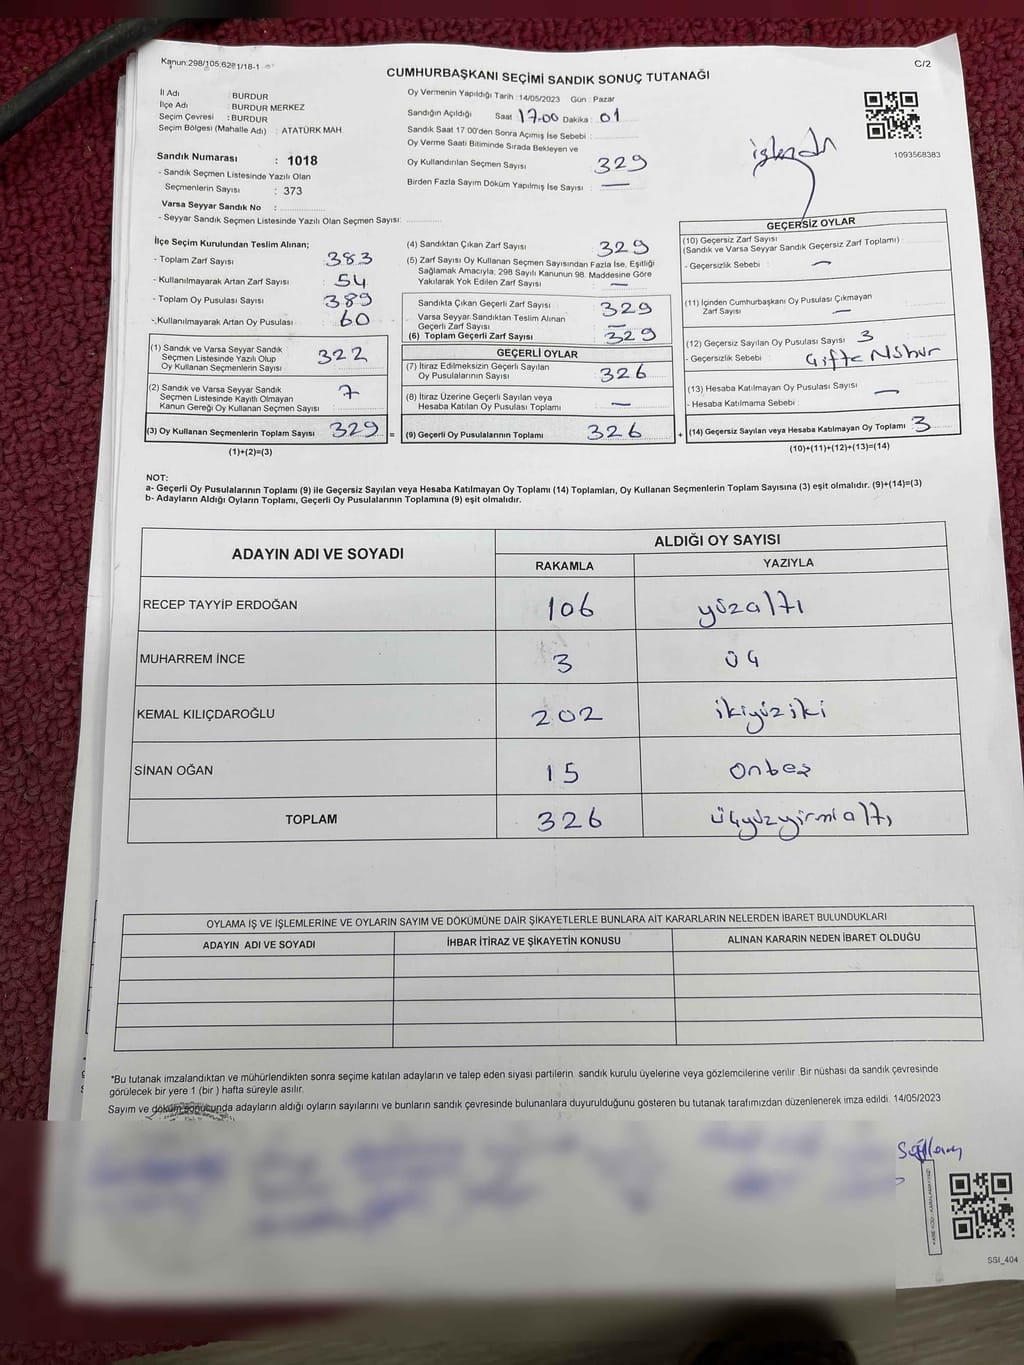 Kanun:298/105,6281/18-1
C/2
CUMHURBAŞKANI SEÇİMİ SANDIK SONUÇ TUTANAĞI
İl Adı : BURDUR
İlçe Adı : BURDUR MERKEZ
Seçim Çevresi : BURDUR
Seçim Bölgesi (Mahalle Adı) : ATATÜRK MAH.
Sandık Numarası : 1018
- Sandık Seçmen Listesinde Yazılı Olan
Seçmenlerin Sayısı : 373
Varsa Seyyar Sandık No :
- Seyyar Sandık Seçmen Listesinde Yazılı Olan Seçmen Sayısı:
Oy Vermenin Yapıldığı Tarih : 14/05/2023 Gün : Pazar
Sandığın Açıldığı Saat : 17.00 Dakika : 01
Sandık Saat 17 00'den Sonra Açımış İse Sebebi :
Oy Verme Saati Bitiminde Sırada Bekleyen ve
Oy Kullandırılan Seçmen Sayısı 329
Birden Fazla Sayım Döküm Yapılmış İse Sayısı : —
işlendi
1093568383
İlçe Seçim Kurulundan Teslim Alınan;
- Toplam Zarf Sayısı : 383
- Kullanılmayarak Artan Zarf Sayısı : 54
- Toplam Oy Pusulası Sayısı : 389
- Kullanılmayarak Artan Oy Pusulası : 60
(1) Sandık ve Varsa Seyyar Sandık
Seçmen Listesinde Yazılı Olup
Oy Kullanan Seçmenlerin Sayısı 322
(2) Sandık ve Varsa Seyyar Sandık
Seçmen Listesinde Kayıtlı Olmayan
Kanun Gereği Oy Kullanan Seçmen Sayısı 7
(3) Oy Kullanan Seçmenlerin Toplam Sayısı 329 =
(1)+(2)=(3)
(4) Sandıktan Çıkan Zarf Sayısı : 329
(5) Zarf Sayısı Oy Kullanan Seçmen Sayısından Fazla İse, Eşitliği
Sağlamak Amacıyla; 298 Sayılı Kanunun 98. Maddesine Göre
Yakılarak Yok Edilen Zarf Sayısı : —
Sandıkta Çıkan Geçerli Zarf Sayısı : 329
Varsa Seyyar Sandıktan Teslim Alınan
Geçerli Zarf Sayısı : —
(6) Toplam Geçerli Zarf Sayısı : 329
GEÇERLİ OYLAR
(7) İtiraz Edilmeksizin Geçerli Sayılan
Oy Pusulalarının Sayısı : 326
(8) İtiraz Üzerine Geçerli Sayılan veya
Hesaba Katılan Oy Pusulası Toplamı : —
(9) Geçerli Oy Pusulalarının Toplamı 326 +
GEÇERSİZ OYLAR
(10) Geçersiz Zarf Sayısı
(Sandık ve Varsa Seyyar Sandık Geçersiz Zarf Toplamı) :
- Geçersizlik Sebebi : —
(11) İçinden Cumhurbaşkanı Oy Pusulası Çıkmayan
Zarf Sayısı : —
(12) Geçersiz Sayılan Oy Pusulası Sayısı : 3
- Geçersizlik Sebebi : Çifte Mühür
(13) Hesaba Katılmayan Oy Pusulası Sayısı : —
- Hesaba Katılmama Sebebi :
(14) Geçersiz Sayılan veya Hesaba Katılmayan Oy Toplamı 3
(10)+(11)+(12)+(13)=(14)
NOT:
a- Geçerli Oy Pusulalarının Toplamı (9) ile Geçersiz Sayılan veya Hesaba Katılmayan Oy Toplamı (14) Toplamları, Oy Kullanan Seçmenlerin Toplam Sayısına (3) eşit olmalıdır. (9)+(14)=(3)
b- Adayların Aldığı Oyların Toplamı, Geçerli Oy Pusulalarının Toplamına (9) eşit olmalıdır.
ADAYIN ADI VE SOYADI
ALDIĞI OY SAYISI
RAKAMLA YAZIYLA
RECEP TAYYİP ERDOĞAN 106 yüzaltı
MUHARREM İNCE 3 üç
KEMAL KILIÇDAROĞLU 202 ikiyüziki
SİNAN OĞAN 15 onbeş
TOPLAM 326 üçyüzyirmialtı
OYLAMA İŞ VE İŞLEMLERİNE VE OYLARIN SAYIM VE DÖKÜMÜNE DAİR ŞİKAYETLERLE BUNLARA AİT KARARLARIN NELERDEN İBARET BULUNDUKLARI
ADAYIN ADI VE SOYADI İHBAR İTİRAZ VE ŞİKAYETİN KONUSU ALINAN KARARIN NEDEN İBARET OLDUĞU
*Bu tutanak imzalandıktan ve mühürlendikten sonra seçime katılan adayların ve talep eden siyasi partilerin sandık kurulu üyelerine veya gözlemcilerine verilir .Bir nüshası da sandık çevresinde
görülecek bir yere 1 (bir ) hafta süreyle asılır.
Sayım ve döküm sonucunda adayların aldığı oyların sayılarını ve bunların sandık çevresinde bulunanlara duyurulduğunu gösteren bu tutanak tarafımızdan düzenlenerek imza edildi. 14/05/2023
SSI_404